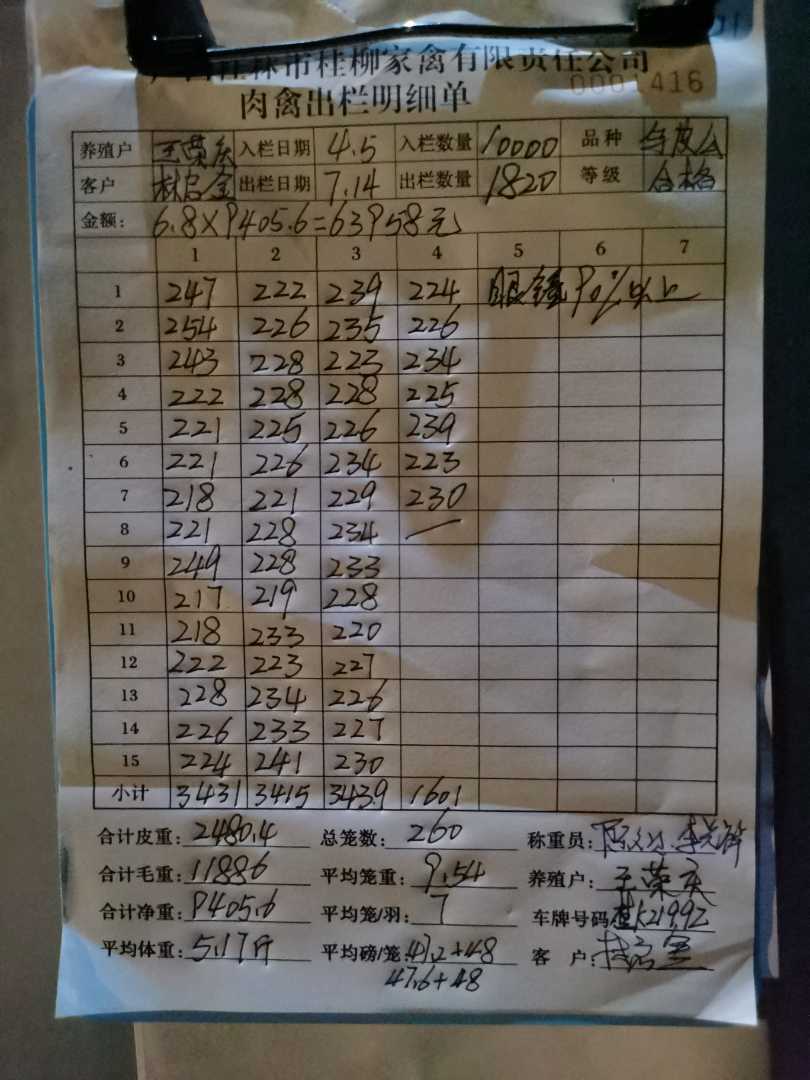 玉林市桂柳家禽有限责任公司
0001416
肉禽出栏明细单
养殖户 王荣庆 入栏日期 4.5 入栏数量 10000 品种
客户 出栏日期 7.14 出栏数量 1820 等级 合格
金额: 6.8×9405.6=63958元
1 2 3 4 5 6 7
1 247 222 239 224 眼 90%以上
2 254 226 235 226
3 243 228 223 234
4 222 228 228 225
5 221 225 226 239
6 221 226 234 223
7 218 221 229 230
8 221 228 234 —
9 249 228 233
10 217 219 228
11 218 233 220
12 222 223 227
13 228 234 226
14 226 233 227
15 224 241 230
小计 3431 3415 3439 1601
合计皮重: 2480.4 总笼数: 260 称重员:
合计毛重: 11886 平均笼重: 9.54 养殖户: 王荣庆
合计净重: 9405.6 平均笼/羽: 7 车牌号码 K21992
平均体重: 5.17斤 平均磅/笼: 47.2+48 客户:
47.6+48